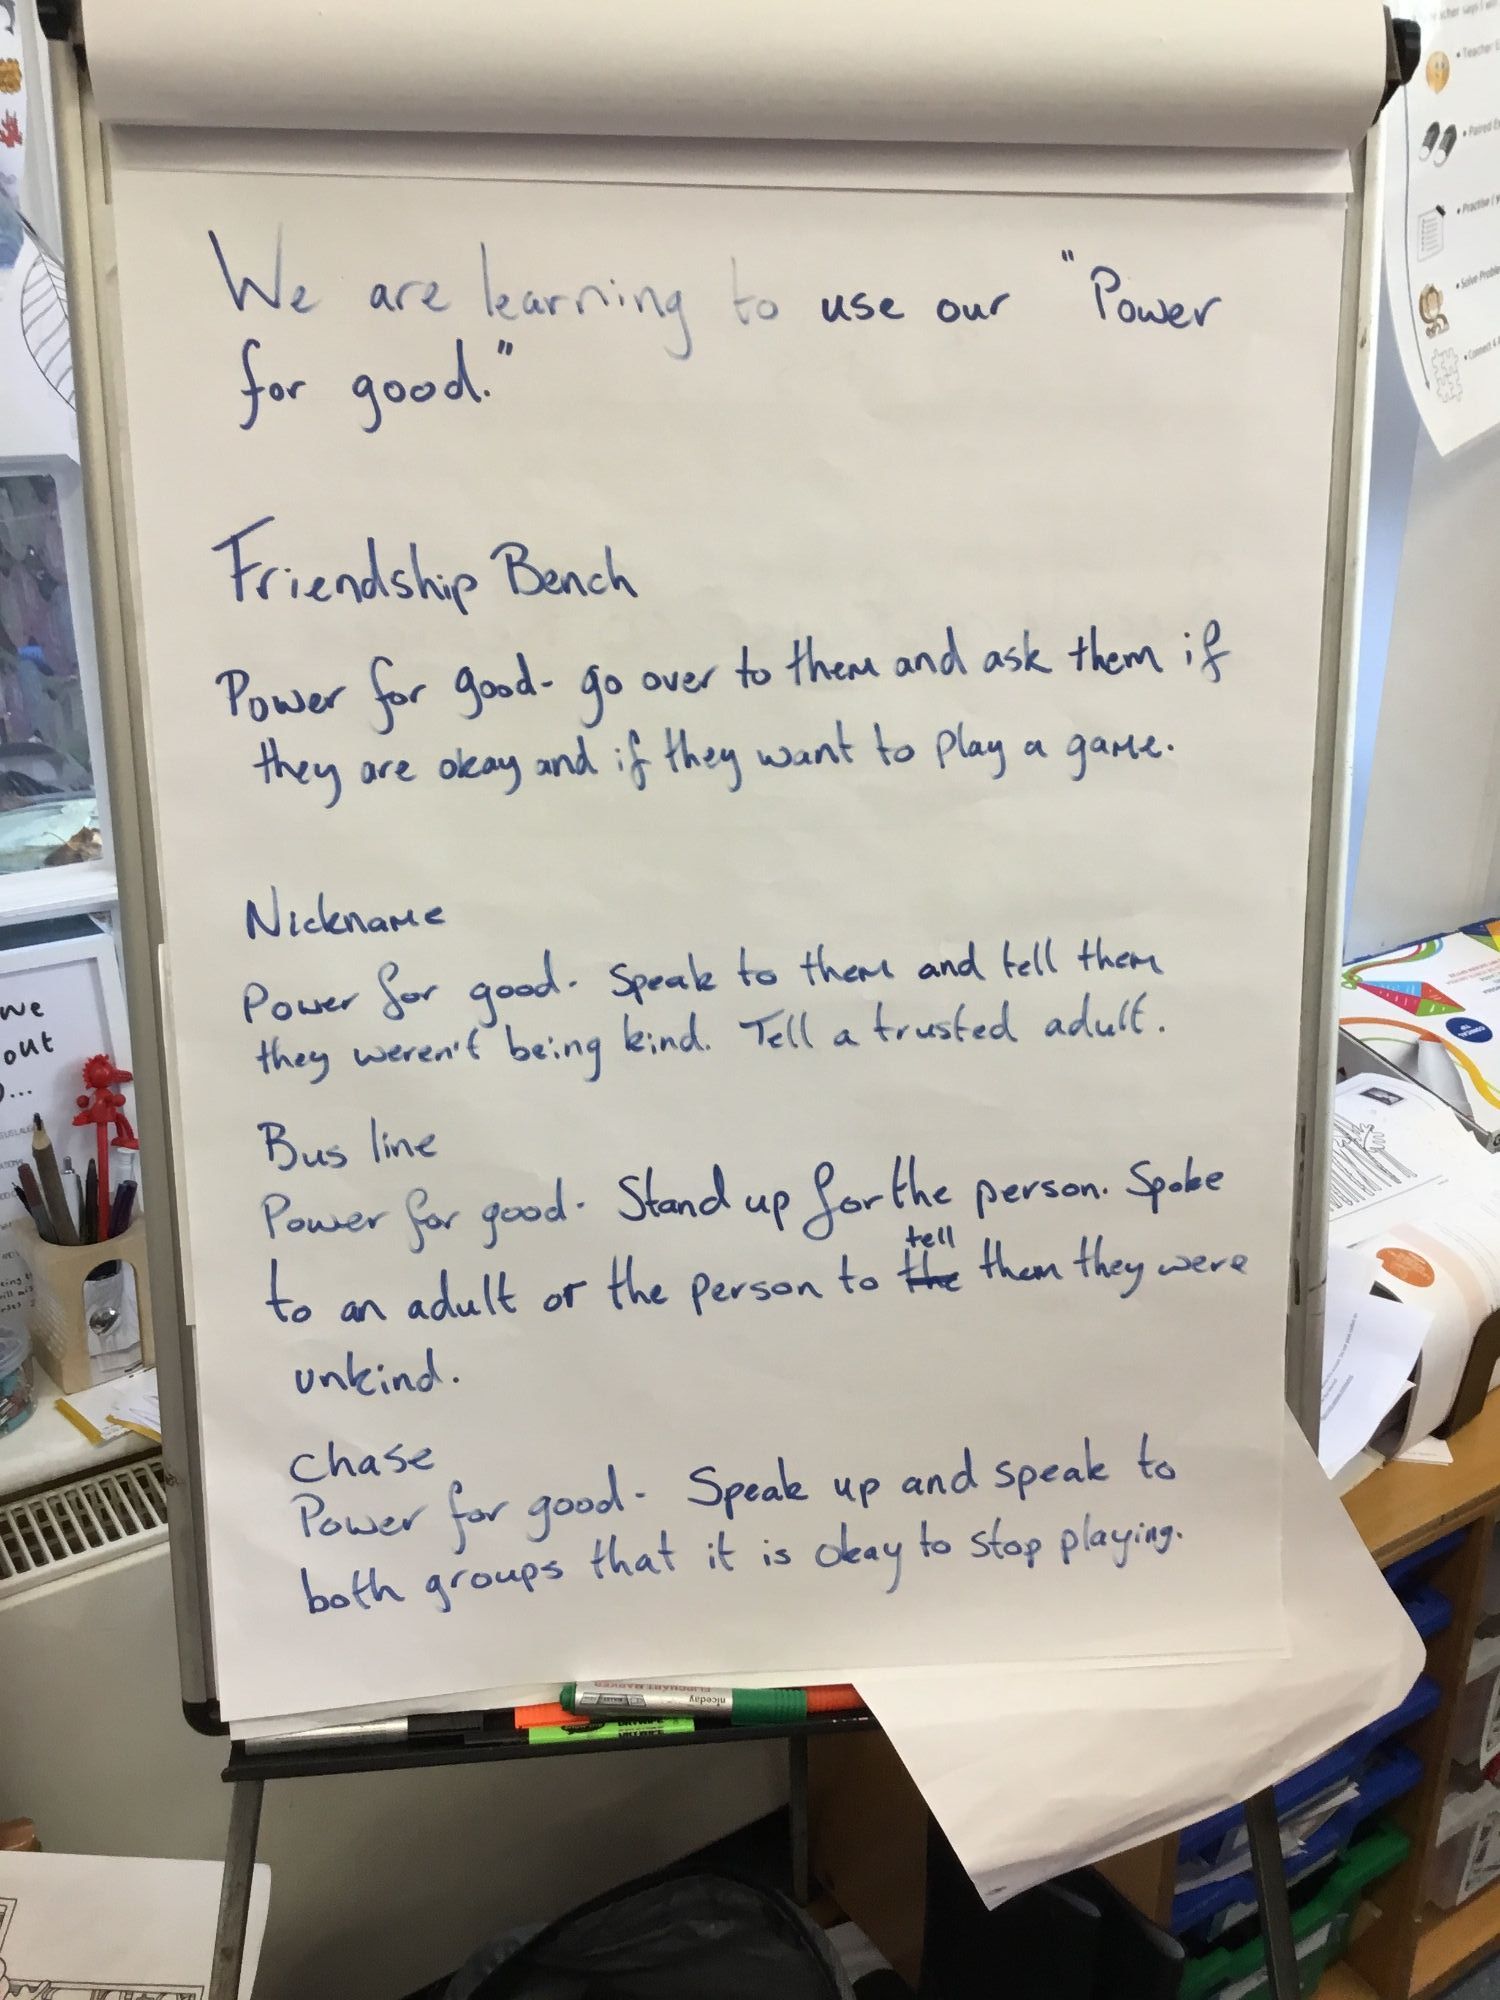 We are learning to use our "Power
for good."
Friendship Bench
Power for good- go over to them and ask them if
they are okay and if they want to play a game.
Nickname
Power for good- Speak to them and tell them
they weren't being kind. Tell a trusted adult.
Bus line
Power for good- Stand up for the person. Spoke
tell
to an adult or the person to the them they were
unkind.
chase
Power for good- Speak up and speak to
both groups that it is okay to stop playing.
we
out
niceday
FLIPCHART MARKER
• Teacher
• Paired
• Practise
• Solve
• Connect 4